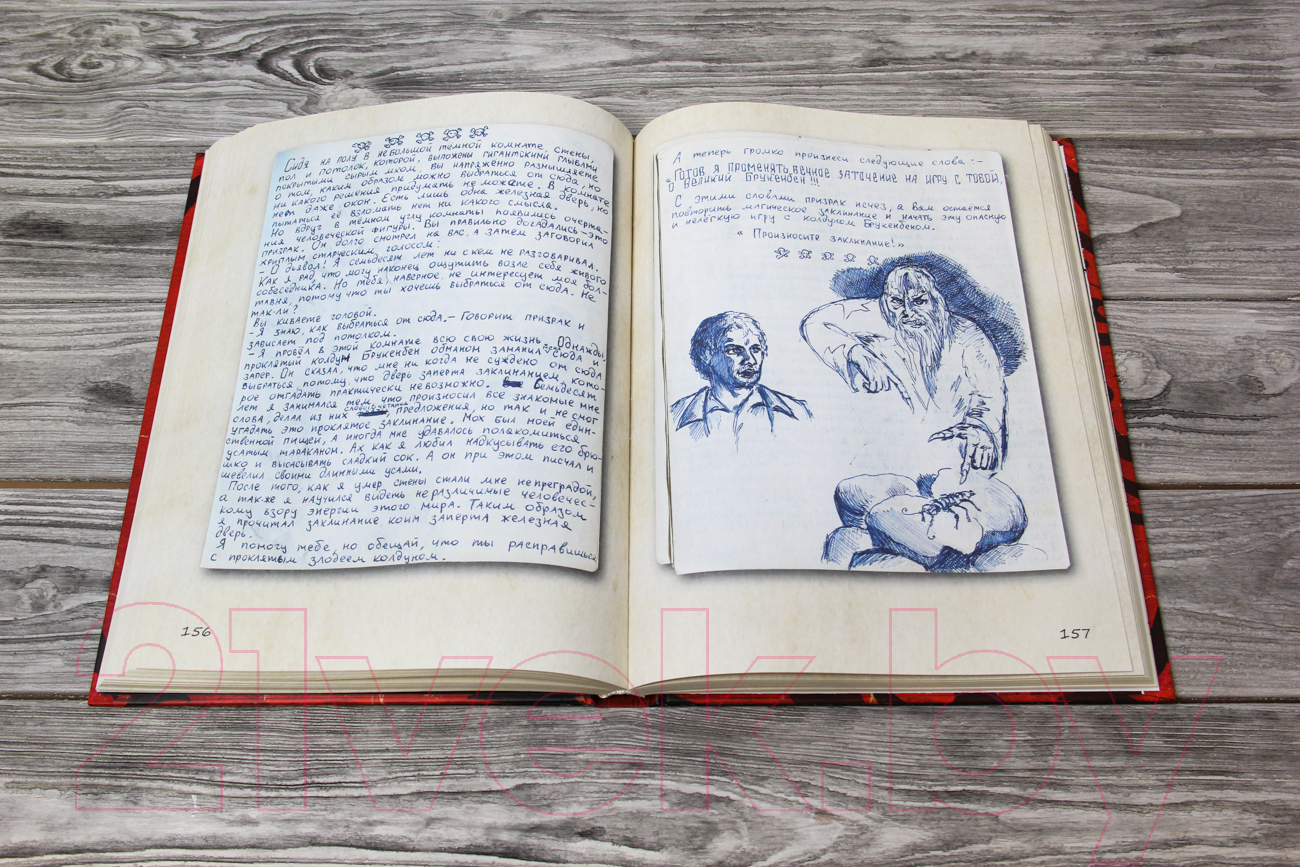 Сидя на полу в небольшой тёмной комнате, стены,
пол и потолок, которой, выложены гигантскими глыбами
покрытыми сырым мхом, вы напряжённо размышляете
о том, каким образом можно выбраться от сюда, но
ни какого решения придумать не можете. В комнате
нет даже окон. Есть лишь одна железная дверь, но
пытаться её взломать нет ни какого смысла.
Но вдруг в тёмном углу комнаты появились очерта-
ния человеческой фигуры. Вы правильно догадались – это
призрак. Он долго смотрел на вас, а затем заговорил
хриплым старческим, голосом:
– О дьявол! Я семьдесят лет ни с кем не разговаривал.
Как я рад, что могу наконец ощутить возле себя живого
собеседника. Но тебя, наверное, не интересует моя бол-
тавня, потому что ты хочешь выбраться от сюда. Не
так-ли?
Вы киваете головой.
– Я знаю, как выбраться от сюда. – Говорит призрак и
зависает под потолком.
– Я провёл в этой комнате всю свою жизнь. Однажды,
проклятый колдун Брукенбен обманом заманил сюда и
запер. Он сказал, что мне ни когда не суждено от сюда
выбраться, потому, что дверь заперта заклинанием, кото-
рое отгадать практически невозможно. Семьдесят
лет я занимался тем, что произносил все знакомые мне
словосочетания
слова, делал из них предложения, но так и не смог
угадать это проклятое заклинание. Мох был моей един-
ственной пищей, а иногда мне удавалось полакомиться
усатым тараканом. Ах как я любил надкусывать его брю-
шко и высасывать сладкий сок. А он при этом писчал и
шевелил своими длинными усами.
После того, как я умер стены стали мне не преградой,
а также я научился видеть неразличимые человечес-
кому взору энергии этого мира. Таким образом
я прочитал заклинание коим заперта железная
дверь.
Я помогу тебе, но обещай, что ты расправишься
с проклятым злодеем колдуном.
156
А теперь громко произнеси следующие слова:-
"Готов я променять вечное заточение на игру с тобой,
о великий Брукенбен!!!
С этими словами призрак исчез, а вам остается
повторить магическое заклинание и начать эту опасную
и нелёгкую игру с колдуном Брукенбеном.
« Произносите заклинание!»
157
21vek.by